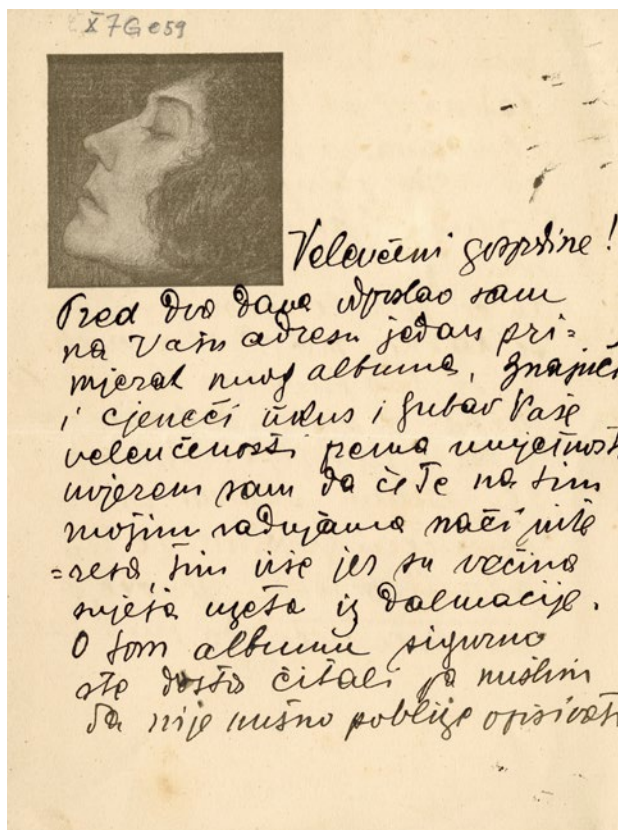 X 7G e59
Veleučeni gospodine!
Pred dva dana otposlao sam
na Vašu adresu jedan pri=
mjerak mog albuma, znajući
i cjeneći ukus i ljubav Vaše
veleučenosti prema umjetnosti
uvjeren sam da ćete na tim
mojim radnjama naći inte
=resa, tim više jer su većina
uzeta iz Dalmacije.
O tom albumu sigurno
ste dosta čitali pa mislim
da nije nužno pobliže opisivati